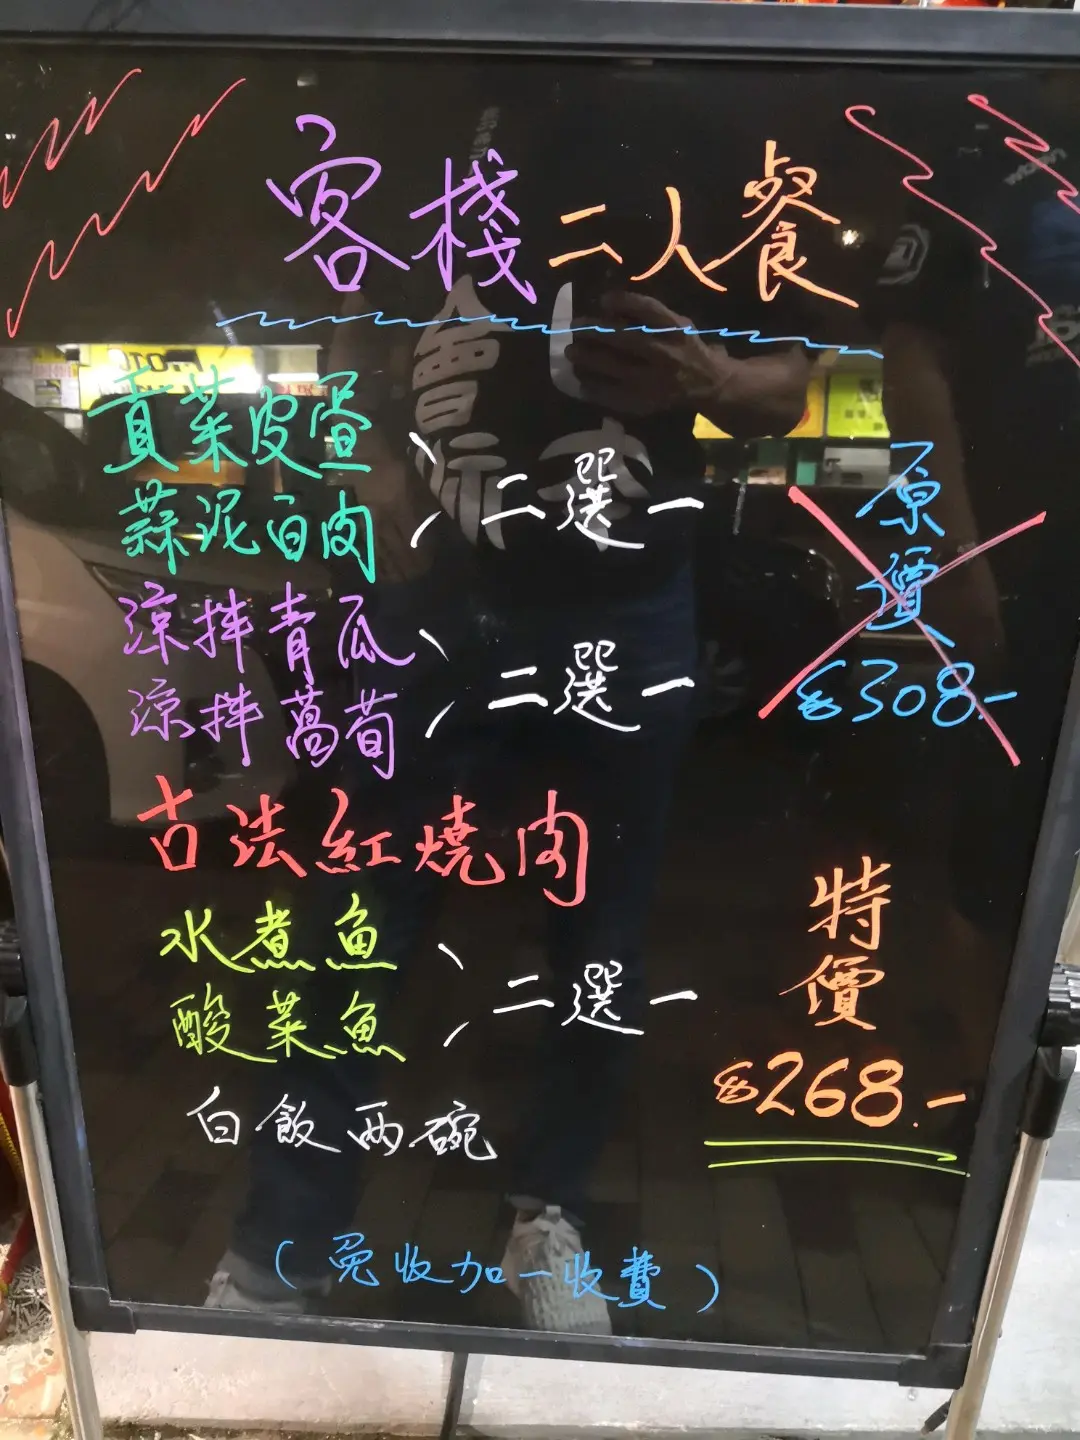 客棧二人餐
貢菜皮蛋
蒜泥白肉
二選一
涼拌青瓜
涼拌萵荀
二選一
古法紅燒肉
水煮魚
酸菜魚
二選一
白飯兩碗
原價
$308.-
特價
$268.-
(免收加一收費)